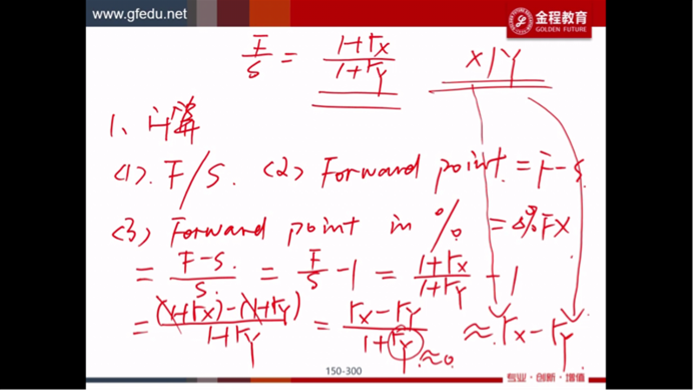 www.gfedu.net
金程教育
GOLDEN FUTURE
F/S = (1+rx)/(1+ry) X/Y
1、计算
(1). F/S. (2) Forward point = F-S
(3) Forward point in % = Δ%FX
= (F-S)/S = F/S - 1 = (1+rx)/(1+ry) - 1
= ((1+rx)-(1+ry))/(1+ry) = (rx-ry)/(1+ry) ≈ rx-ry
≈0
150-300
专业·创新·增值